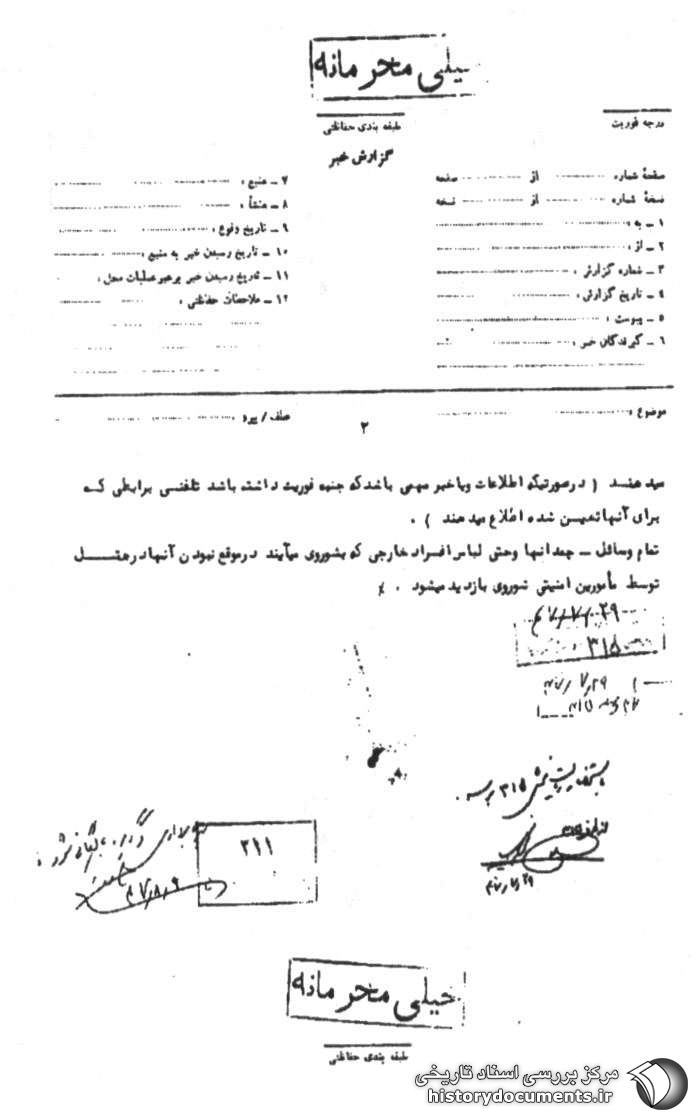 خیلی محرمانه
طبقه بندی حفاظتی
درجه فوریت
گزارش خبر
صفحهٔ شماره از صفحه
نسخهٔ شماره از نسخه
۱ ـ به :
۲ ـ از :
۳ ـ شماره گزارش :
۴ ـ تاریخ گزارش :
۵ ـ پیوست :
۶ ـ گیرندگان خبر :
۷ ـ منبع :
۸ ـ منشأ :
۹ ـ تاریخ وقوع :
۱۰ ـ تاریخ رسیدن خبر به منبع :
۱۱ ـ تاریخ رسیدن خبر برهبر عملیات محل :
۱۲ ـ ملاحظات حفاظتی :
موضوع :
عطف / پیرو :
۲
میدهند ( درصورتیکه اطلاعات ویاخبر مهمی باشدکه جنبه فوریت داشته باشد تلفنی برابطی که
برای آنهاتعیین شده اطلاع میدهند ) .
تمام وسائل ـ چمدانها وحتی لباس افراد خارجی که بشوروی میآیند درموقع نبودن آنهادرهتل
توسط مأمورین امنیتی شوروی بازدید میشود . ٪
۴۷/۷/۲۹
۳۱۵
۴۷/۷/۲۹
۳۱۵
۳۱۱
بایگانی شود
۴۷/۸/۹
خیلی محرمانه
طبقه بندی حفاظتی
مرکز بررسی اسناد تاریخی
historydocuments.ir